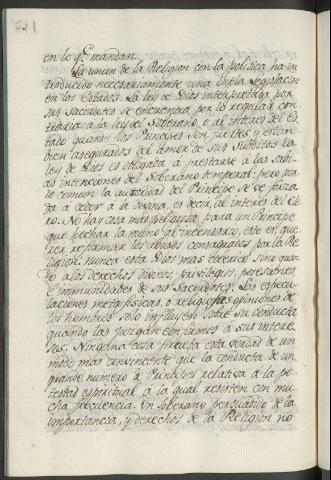 en lo q.e mandan.
La union de la Religion con la politica ha in
troducido necesariamente una doble Legislacion
en los Estados. La ley de Dios interpretada por
sus Sacerdotes se encuentra por lo regular con
traria à la ley del Soberano, ò al interes del Es
tado quando los Principes son fuertes, y estan
bien asegurados del amor de sus Subditos la
ley de Dios es obligada à prestarse à las sabi
as intenciones del Soberano temporal; pero por
lo comun la autoridad del Principe se ve forza
da à ceder à la divina, es decir, al interes del Cle
ro. No hay cosa mas peligrosa para un Principe
que hechar la mano al incensario, esto es, que
rer reformar los abusos consagrados por la Re
ligion. nunca està Dios mas colerico sino quan
do à los derechos divinos, privilegios, posesiones,
è inmunidades de sus Sacerdotes. Las especu
laciones metafisicas, ò religiosas opiniones de
los hombres solo influyen sobre su conducta
quando las juzgan conformes à sus intere
ses. Ninguna cosa prueba esta verdad de un
modo mas convincente que la conducta de un
grande numero de Principes relativa à la po
testad espiritual à la qual resisten con mu
cha frecuencia. Un Soberano persuadido de la
importancia, y derechos de la Religion no